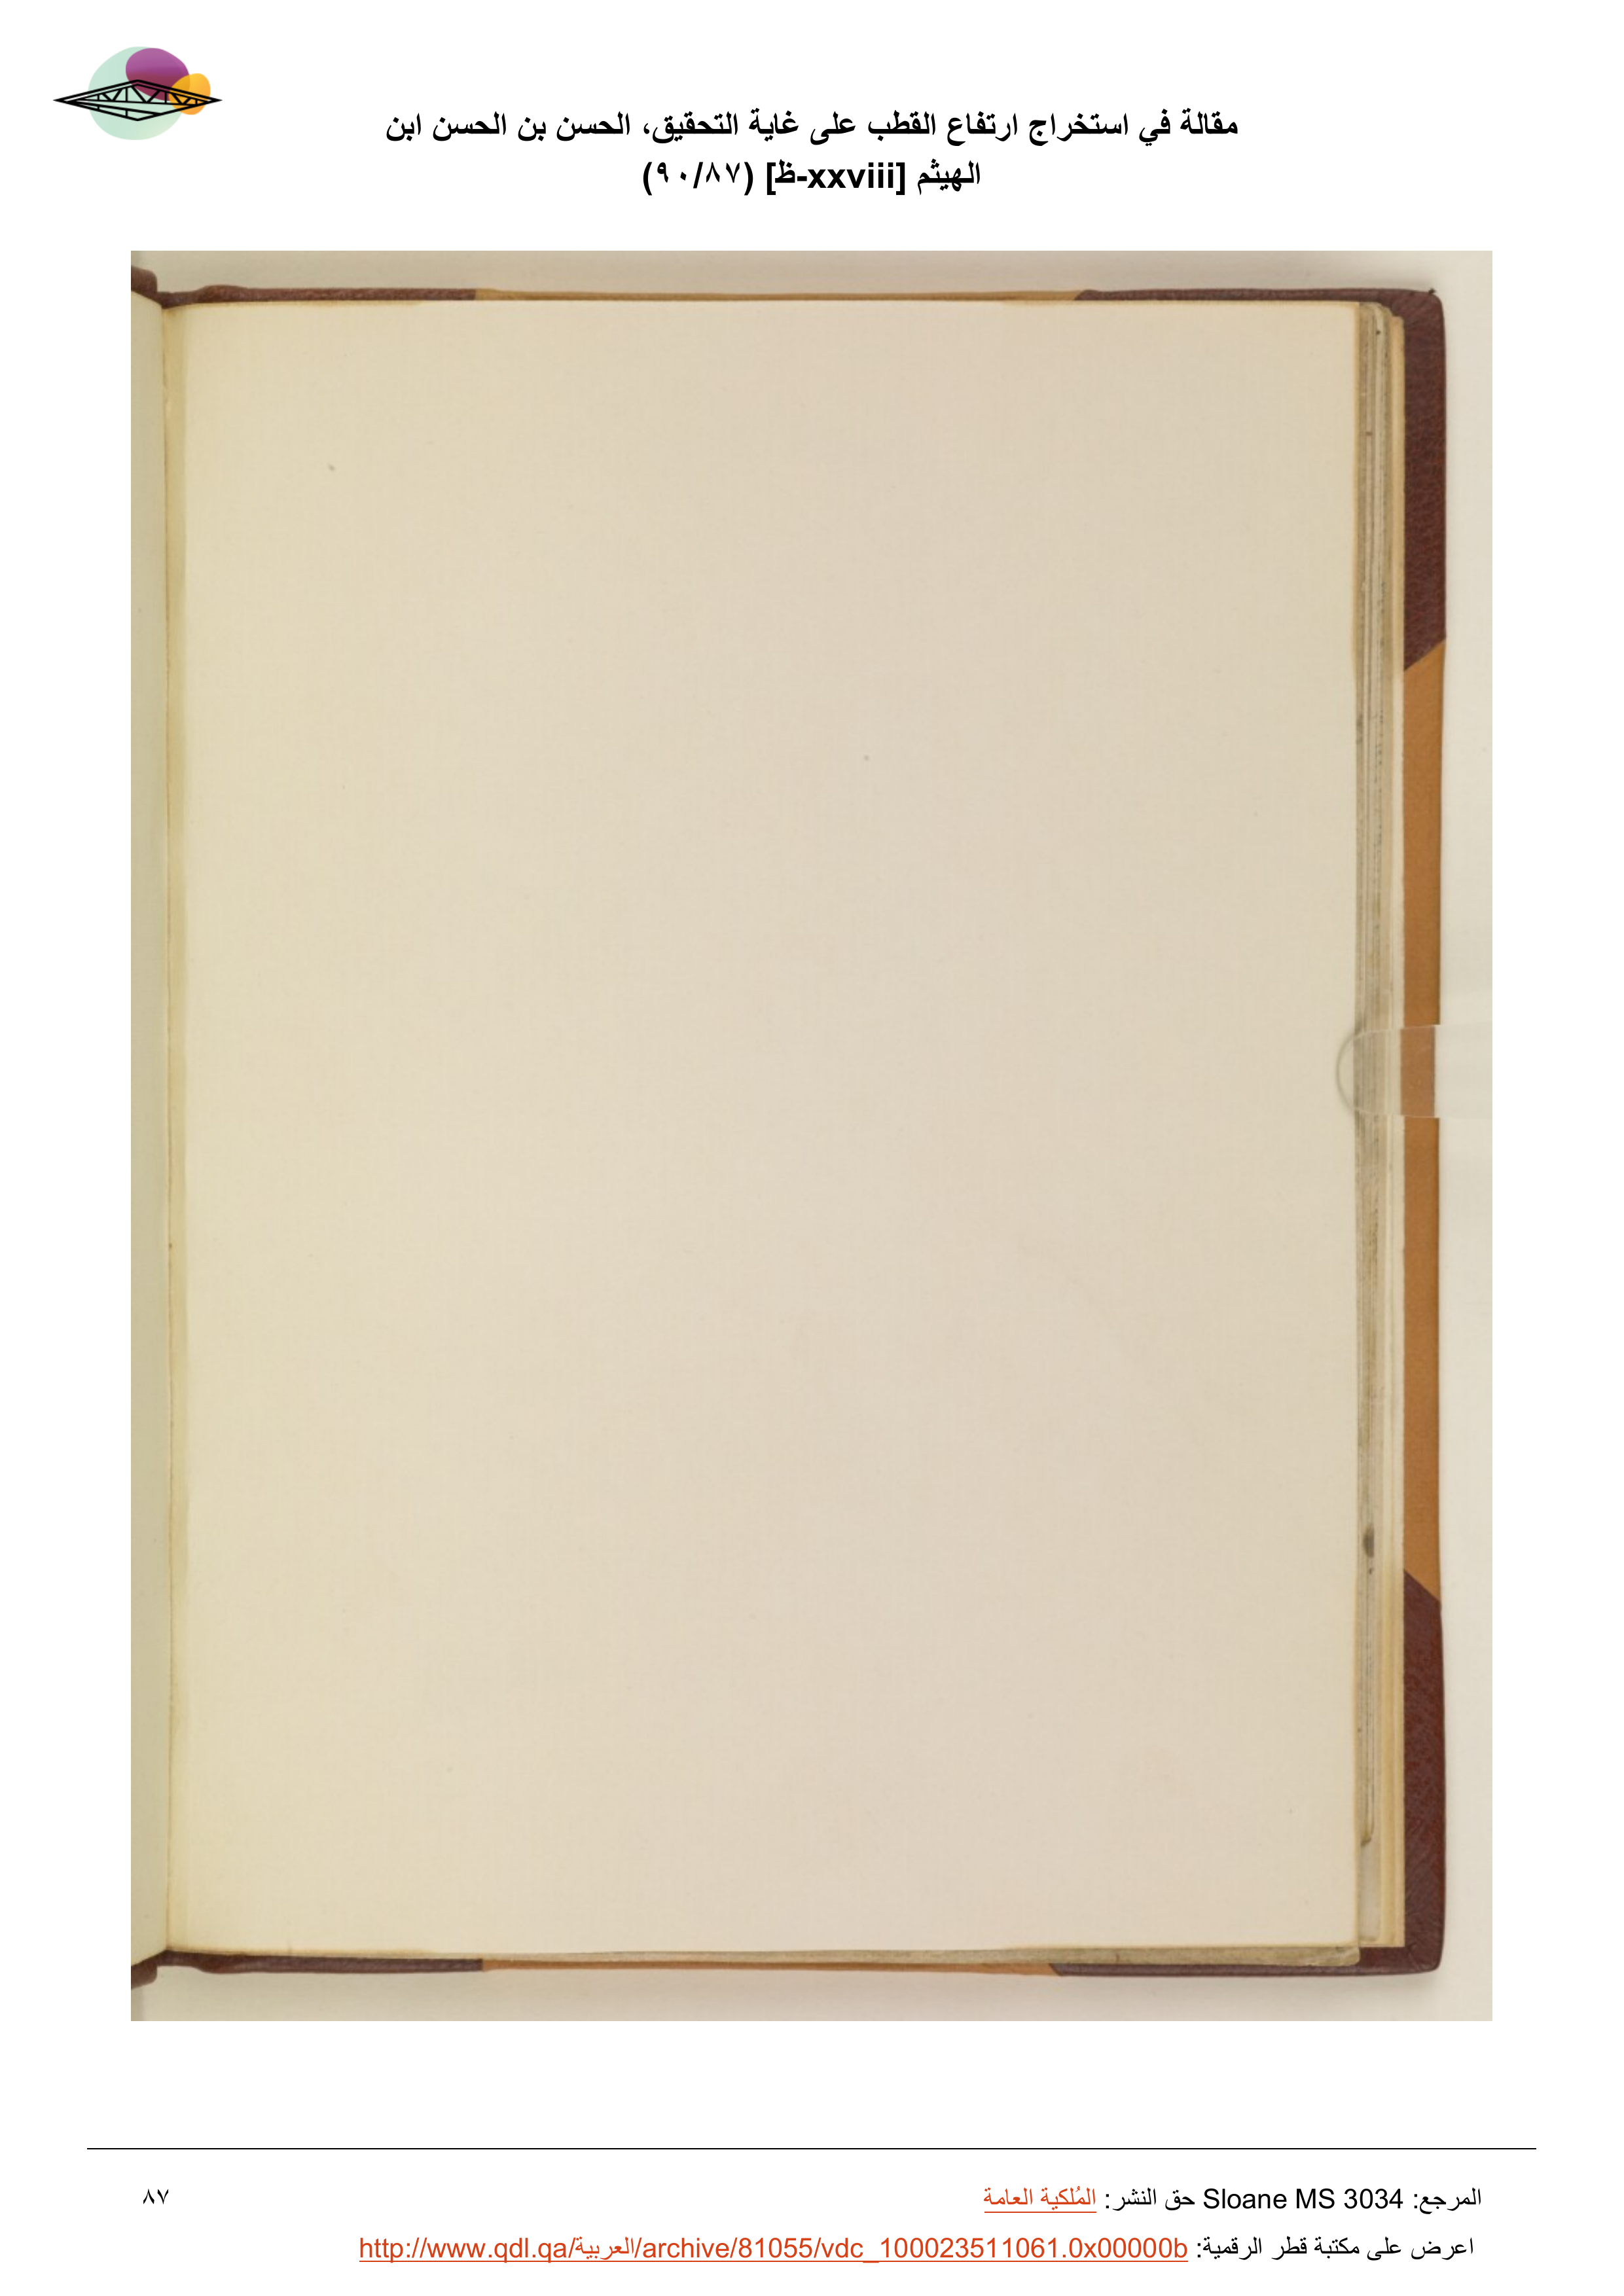 مقالة في استخراج ارتفاع القطب على غاية التحقيق، الحسن بن الحسن ابن
الهيثم [xxviii-ظ] (٩٠/٨٧)
المرجع: Sloane MS 3034 حق النشر: المُلكية العامة
٨٧
اعرض على مكتبة قطر الرقمية: http://www.qdl.qa/العربية/archive/81055/vdc_100023511061.0x00000b